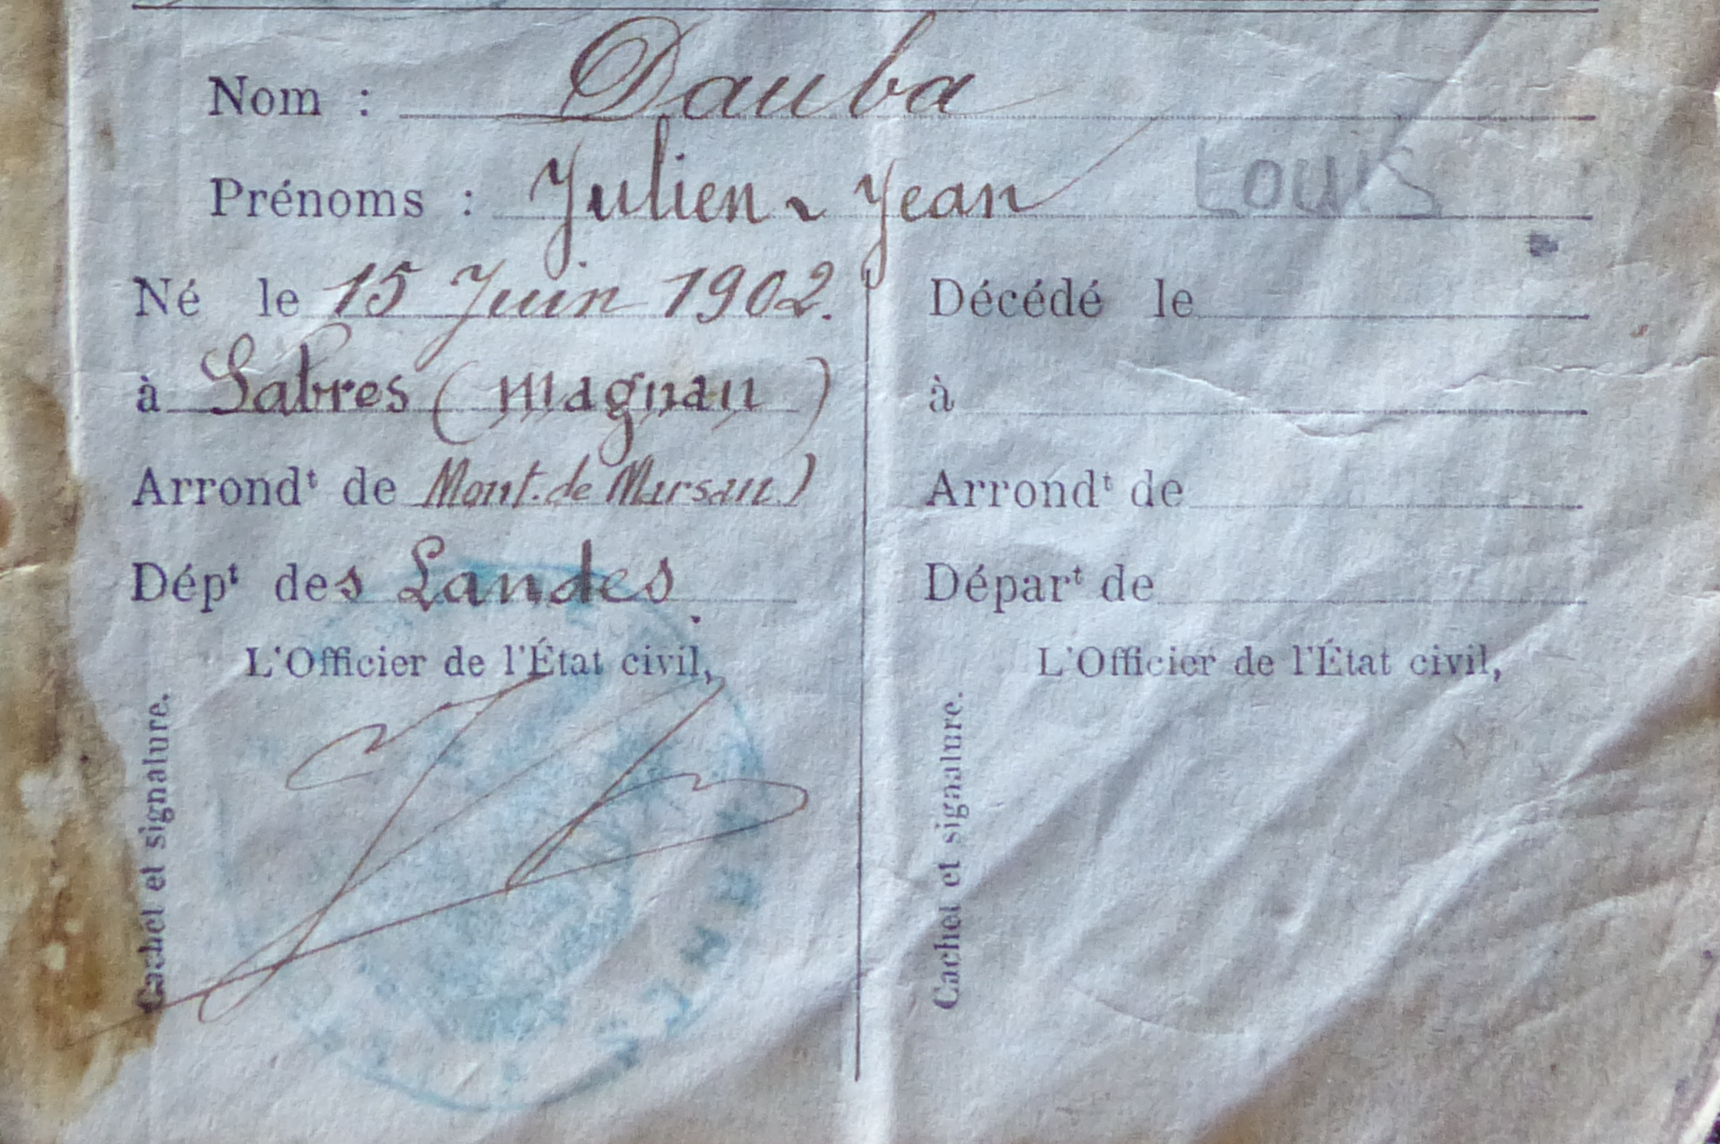 Nom : Dauba
Prénoms : Julien - Jean Louis
Né le 15 Juin 1902.
à Sabres (Magnan)
Arrondt de Mont-de-Marsan)
Dépt des Landes.
L'Officier de l'État civil,
Cachet et signature.
Décédé le
à
Arrondt de
Départ de
L'Officier de l'État civil,
Cachet et signature.